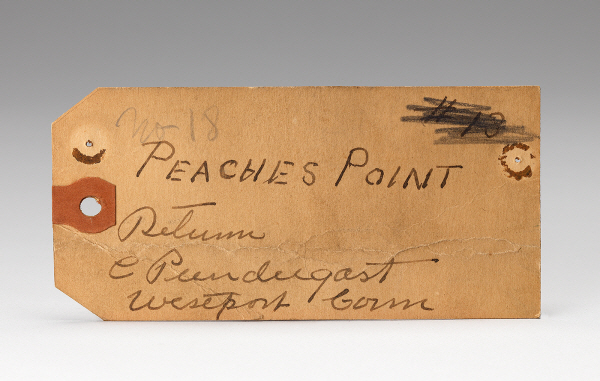 No 18
# 18
PEACHES POINT
Return
C Prendergast
Westport Conn